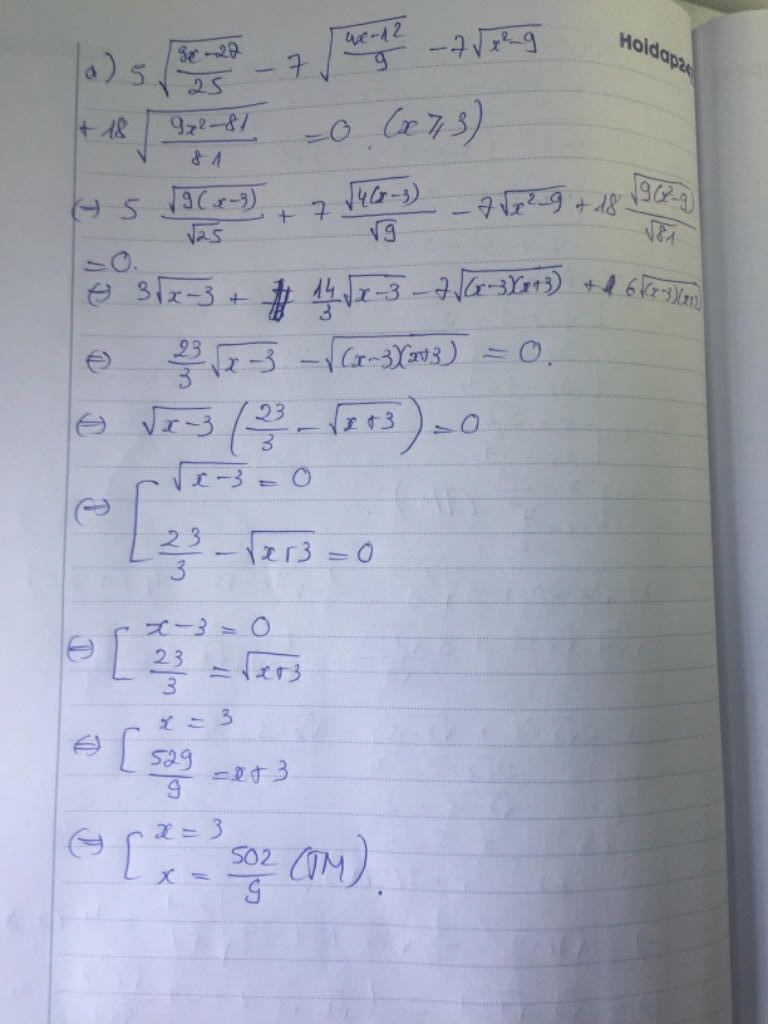 Hoidap247
a) 5√((9x-27)/25) - 7√((4x-12)/9) - 7√(x²-9)
+ 18√((9x²-81)/81) = 0. (x ⩾ 3)
(=) 5 √(9(x-3))/√25 + 7 √(4(x-3))/√9 - 7√(x²-9) + 18 √(9(x²-9))/√81
= 0.
(=) 3√(x-3) + 14/3 √(x-3) - 7√((x-3)(x+3)) + 6√((x-3)(x+3))
(=) 23/3 √(x-3) - √((x-3)(x+3)) = 0.
(=) √(x-3) (23/3 - √(x+3)) = 0
(=) [ √(x-3) = 0
23/3 - √(x+3) = 0
(=) [ x-3 = 0
23/3 = √(x+3)
(=) [ x = 3
529/9 = x+3
(=) [ x = 3
x = 502/9 (TM).